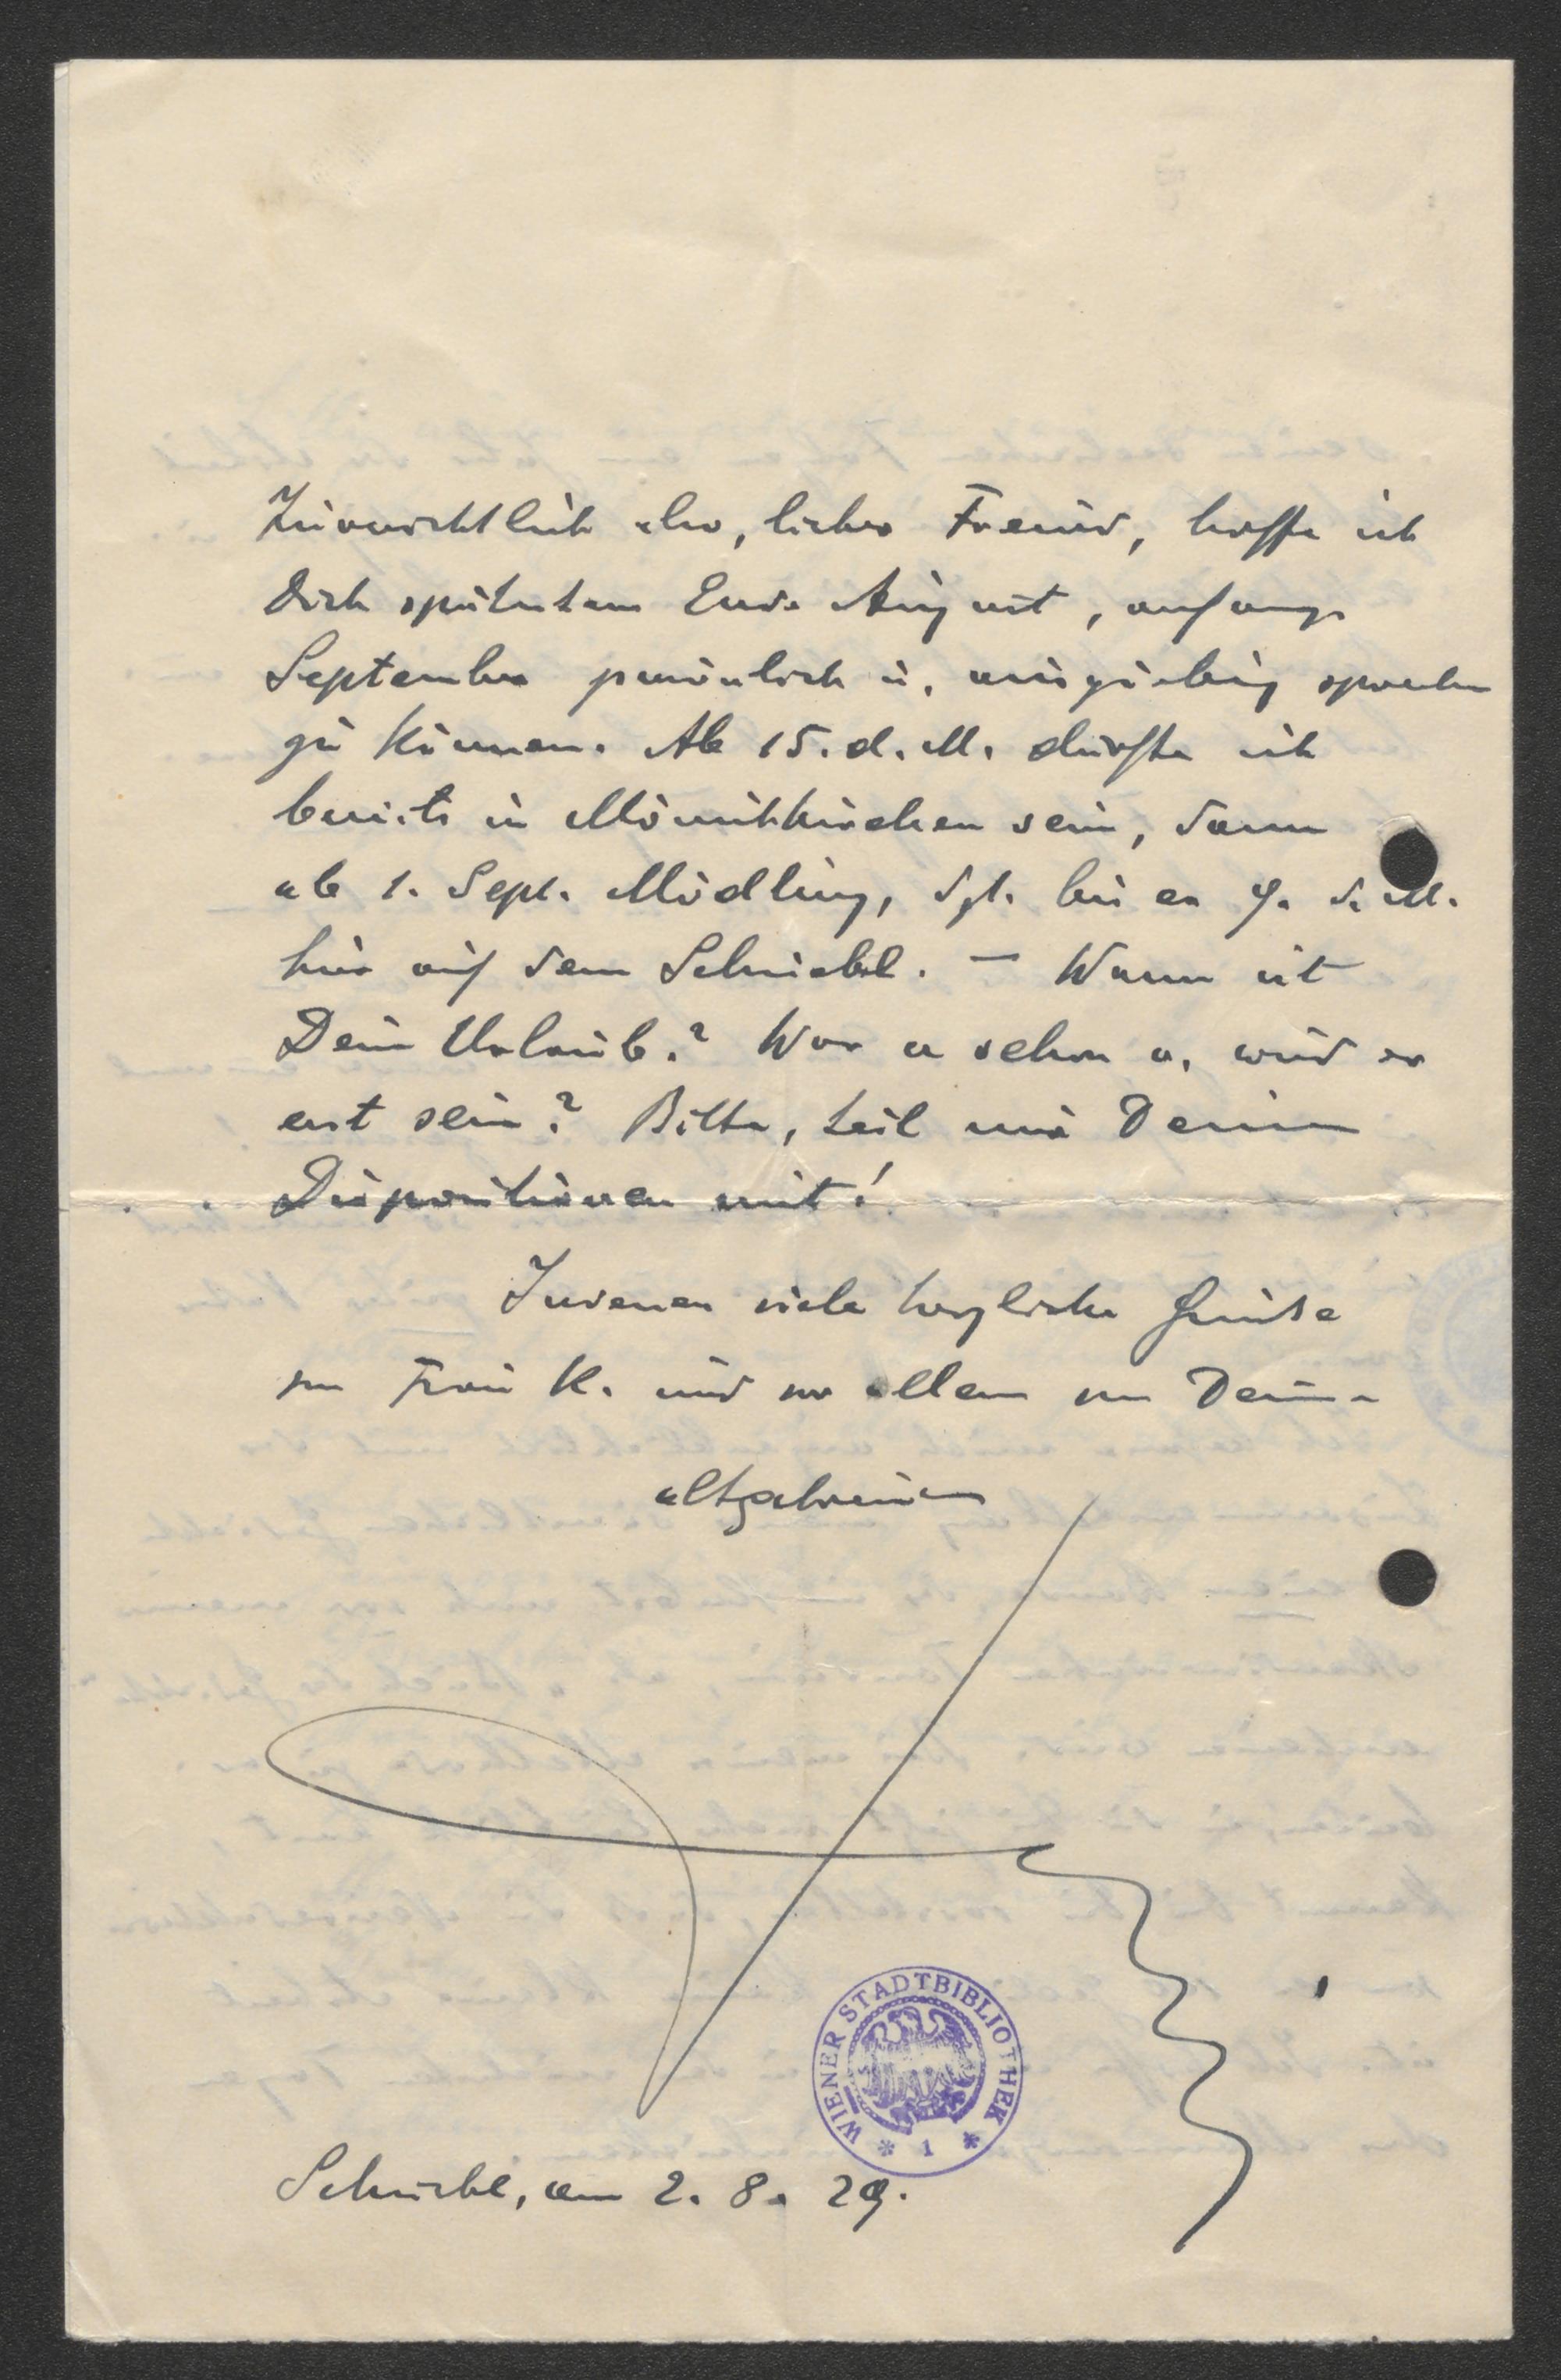 Zuversichtlich also, lieber Freund, hoffe ich
Dich spätestens Ende August, anfangs
September persönlich u. ausgiebig sprechen
zu können. Ab 15. d. M. dürfte ich
bereits in Mönichkirchen sein, dann
ab 1. Sept. Mödling, bis 9. d. M.
hier auf dem Schneebl. – Wann ist
Dein Urlaub? War er schon o. wird er
erst sein? Bitte, teil mir Deine
Dispositionen mit!
Indessen viele herzliche Grüsse
an Frau K. und vor allem an Dein
altgetreuen
WIENER STADTBIBLIOTHEK
* 1 *
am 2. 8. 29.